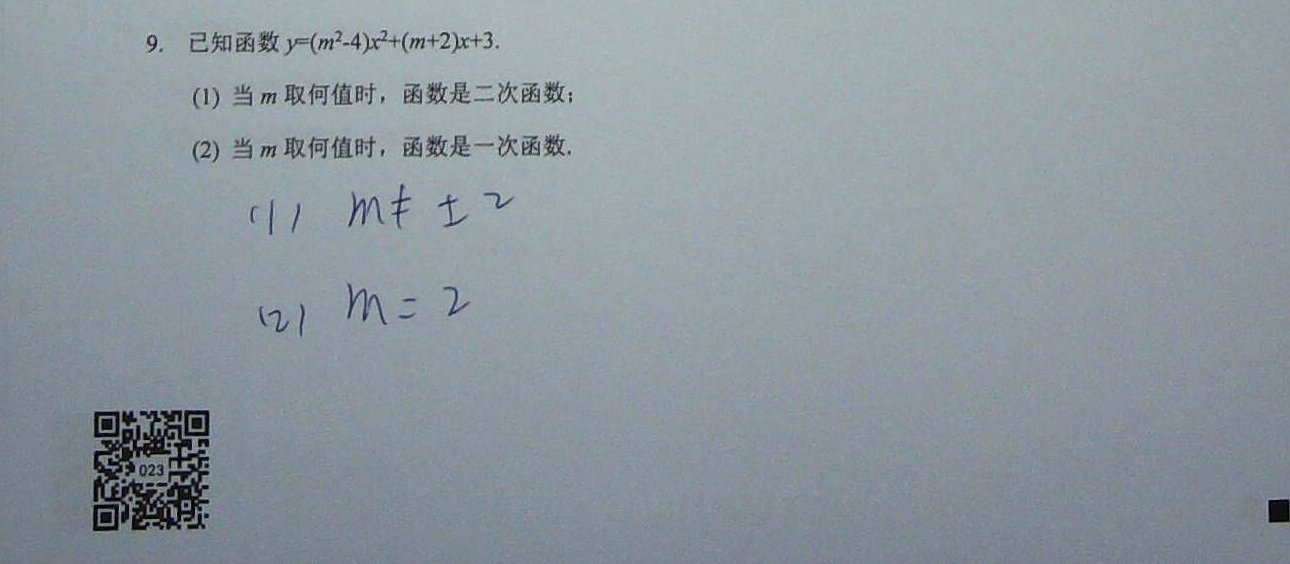 9. 已知函数 y=(m²-4)x²+(m+2)x+3.
(1) 当 m 取何值时，函数是二次函数；
(2) 当 m 取何值时，函数是一次函数.
(1) m≠±2
(2) m=2
023